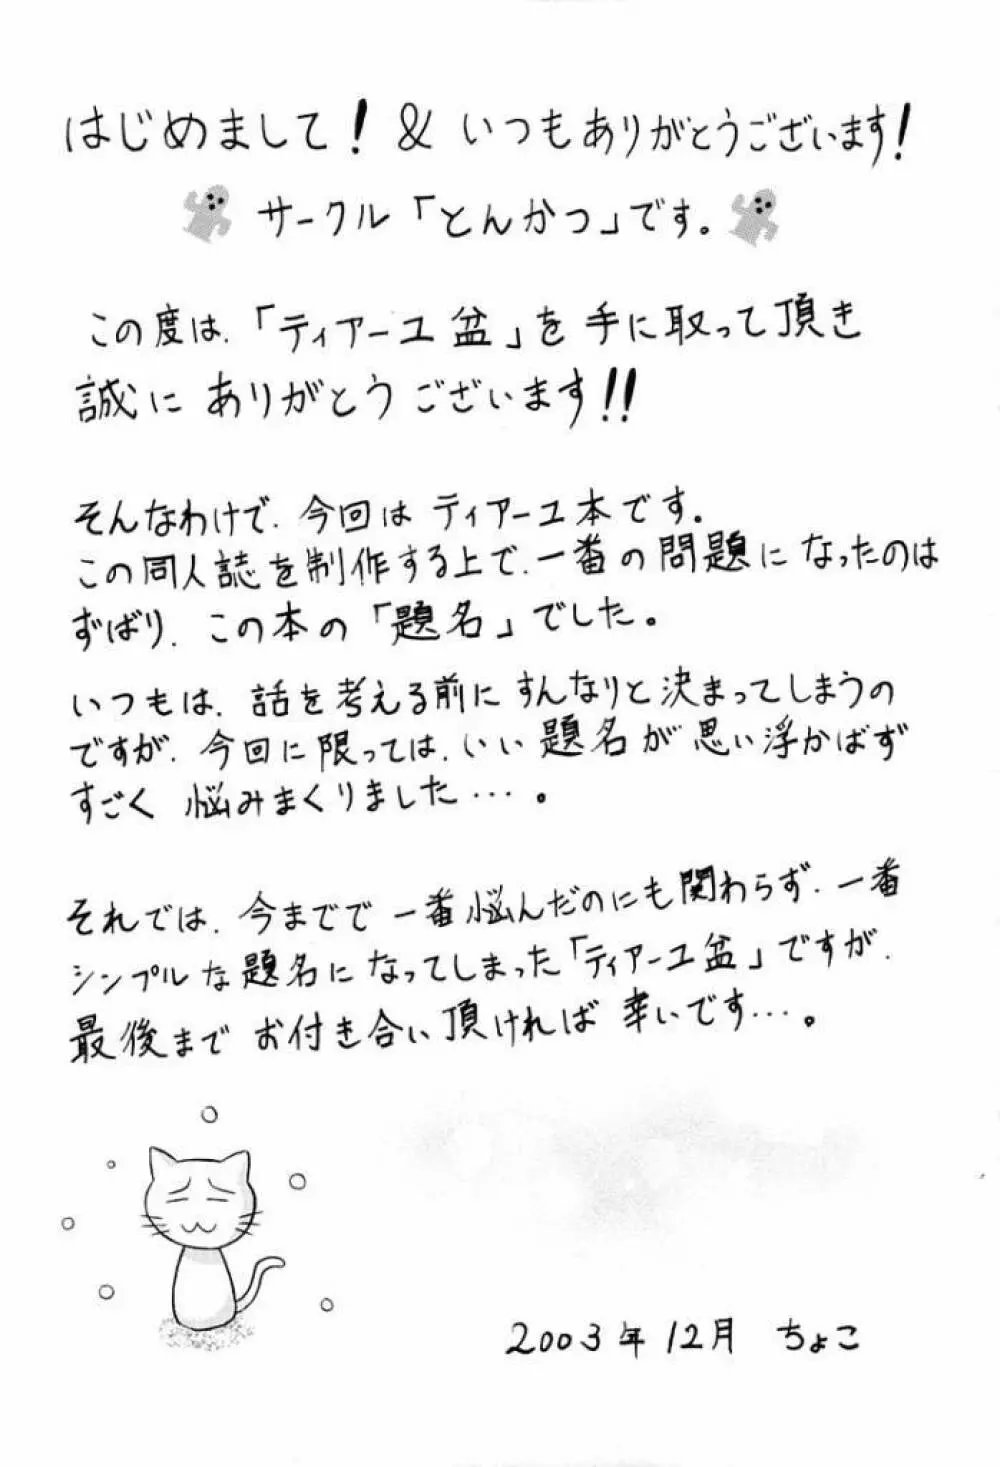 はじめまして! & いつもありがとうございます!
サークル「とんかつ」です。
この度は、「ティアーユ盆」を手に取って頂き
誠に ありがとうございます!!
そんなわけで、今回は ティアーユ本です。
この同人誌を制作する上で、一番の問題になったのは
ずばり、この本の「題名」でした。
いつもは、話を考える前に すんなりと決まってしまうの
ですが、今回に限っては、いい題名が思い浮かばず
すごく 悩みまくりました…。
それでは、今までで一番悩んだのにも関わらず、一番
シンプルな題名になってしまった「ティアーユ盆」ですが、
最後まで お付き合い頂ければ 幸いです…。
2003年12月 ちょこ